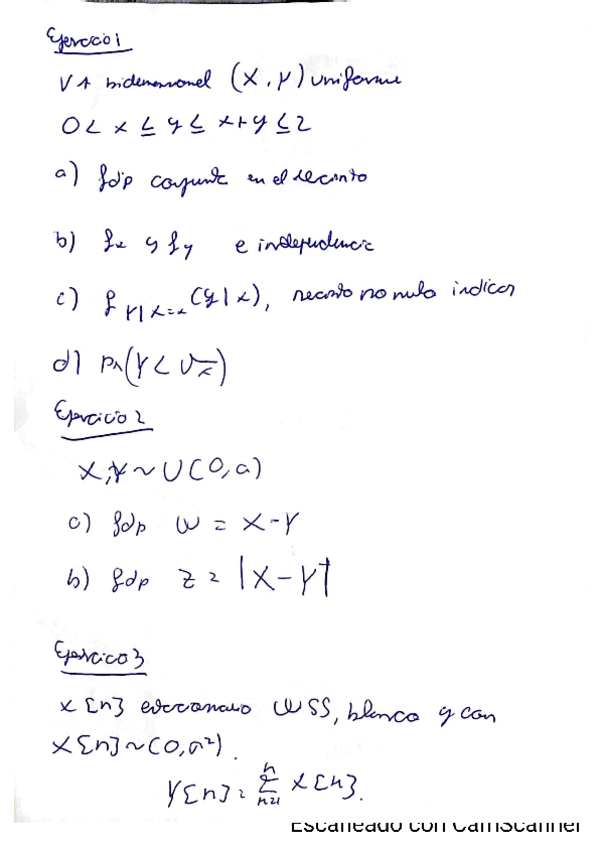 Ejercicio 1
VA bidimensional (X,Y) uniforme
0 < x ≤ y ≤ x+y ≤ 2
a) fdp conjunta en el recinto
b) fx y fy e independencia
c) f Y|X=x (y|x), recinto no nulo indicar
d) Pr(Y < √x)
Ejercicio 2
X,Y ~ U(0,a)
a) fdp W = X-Y
b) fdp Z = |X-Y|
Ejercicio 3
X[n] estacionario WSS, blanco y con
X[n] ~ (0,σ²).
Y[n] = Σ X[n].
Escaneado con CamScanner